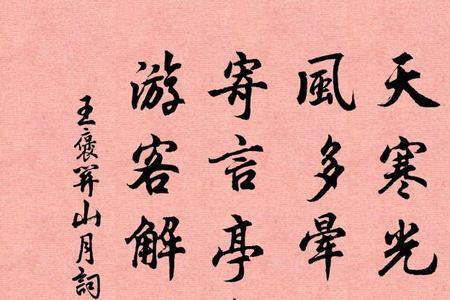 天寒光
風多暈
寄言亭
游客解
王褒關山月詞